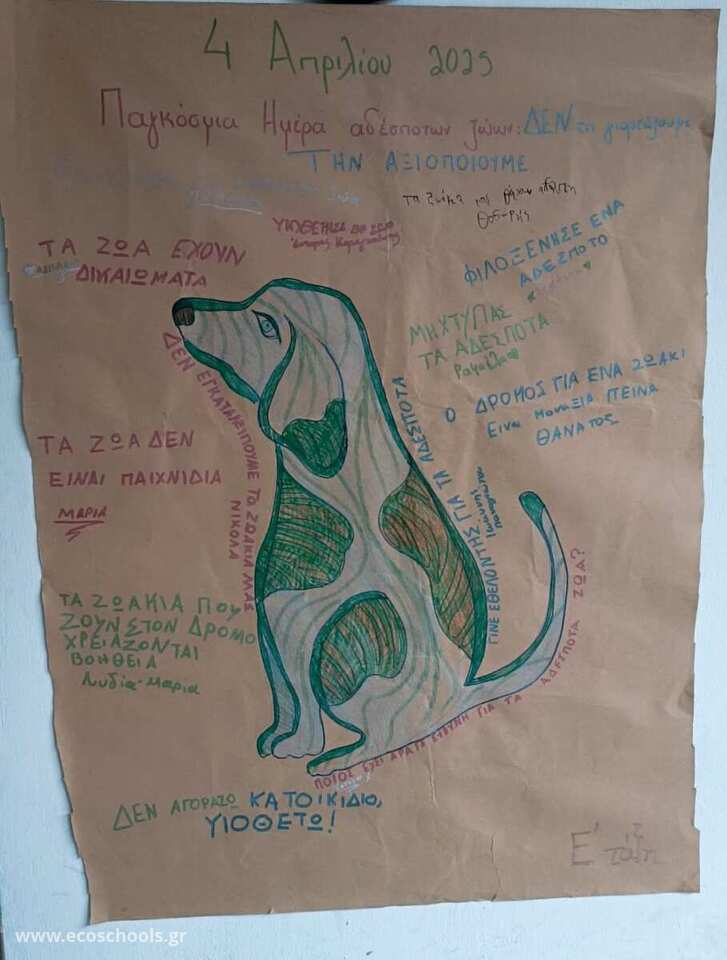 4 Απριλίου 2025
Παγκόσμια Ημέρα αδέσποτων ζώων: ΔΕΝ τη γιορτάζουμε
ΤΗΝ ΑΞΙΟΠΟΙΟΥΜΕ
ΤΑ ΖΩΑ ΕΧΟΥΝ
ΔΙΚΑΙΩΜΑΤΑ
ΥΙΟΘΕΤΗΣΕ ΕΝΑ ΖΩΟ
ΦΙΛΟΞΕΝΗΣΕ ΕΝΑ
ΑΔΕΣΠΟΤΟ
ΜΗ ΧΤΥΠΑΣ
ΤΑ ΑΔΕΣΠΟΤΑ
Ραφαέλα
Ο ΔΡΟΜΟΣ ΓΙΑ ΕΝΑ ΖΩΑΚΙ
Είναι ΜΟΝΑΞΙΑ ΠΕΙΝΑ
ΘΑΝΑΤΟΣ
ΔΕΝ ΕΓΚΑΤΑΛΕΙΠΟΥΜΕ ΤΟ ΖΩΑΚΙΑ ΜΑΣ
ΝΙΚΟΛΑ
ΓΙΝΕ ΕΘΕΛΟΝΤΗΣ ΓΙΑ ΤΑ ΑΔΕΣΠΟΤΑ
ΤΑ ΖΩΑ ΔΕΝ
ΕΙΝΑΙ ΠΑΙΧΝΙΔΙΑ
ΜΑΡΙΑ
ΤΑ ΖΩΑΚΙΑ ΠΟΥ
ΖΟΥΝ ΣΤΟΝ ΔΡΟΜΟ
ΧΡΕΙΑΖΟΝΤΑΙ
ΒΟΗΘΕΙΑ
Λυδία-Μαρία
ΠΟΙΟΣ ΕΧΕΙ ΑΡΑΓΕ ΕΥΘΥΝΗ ΓΙΑ ΤΑ ΑΔΕΣΠΟΤΑ ΖΩΑ?
ΔΕΝ ΑΓΟΡΑΖΩ ΚΑΤΟΙΚΙΔΙΟ,
ΥΙΟΘΕΤΩ!
Ε' τάξη
www.ecoschools.gr